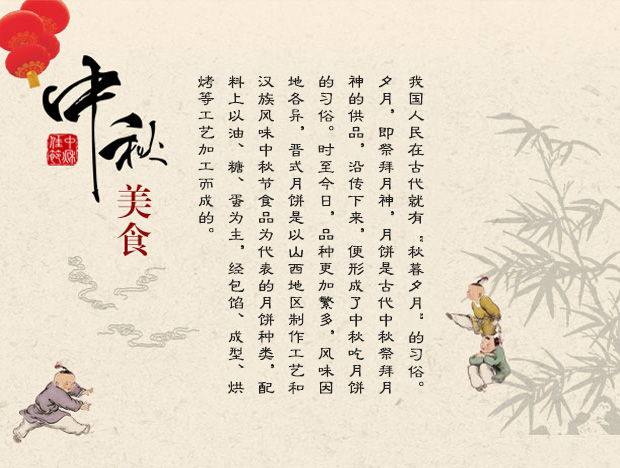 中秋
中秋佳节
美食
我国人民在古代就有“秋暮夕月”的习俗。
夕月，即祭拜月神，月饼是古代中秋祭拜月
神的供品，沿传下来，便形成了中秋吃月饼
的习俗。时至今日，品种更加繁多，风味因
地各异，晋式月饼是以山西地区制作工艺和
汉族风味中秋节食品为代表的月饼种类，配
料上以油、糖、蛋为主，经包馅、成型、烘
烤等工艺加工而成的。